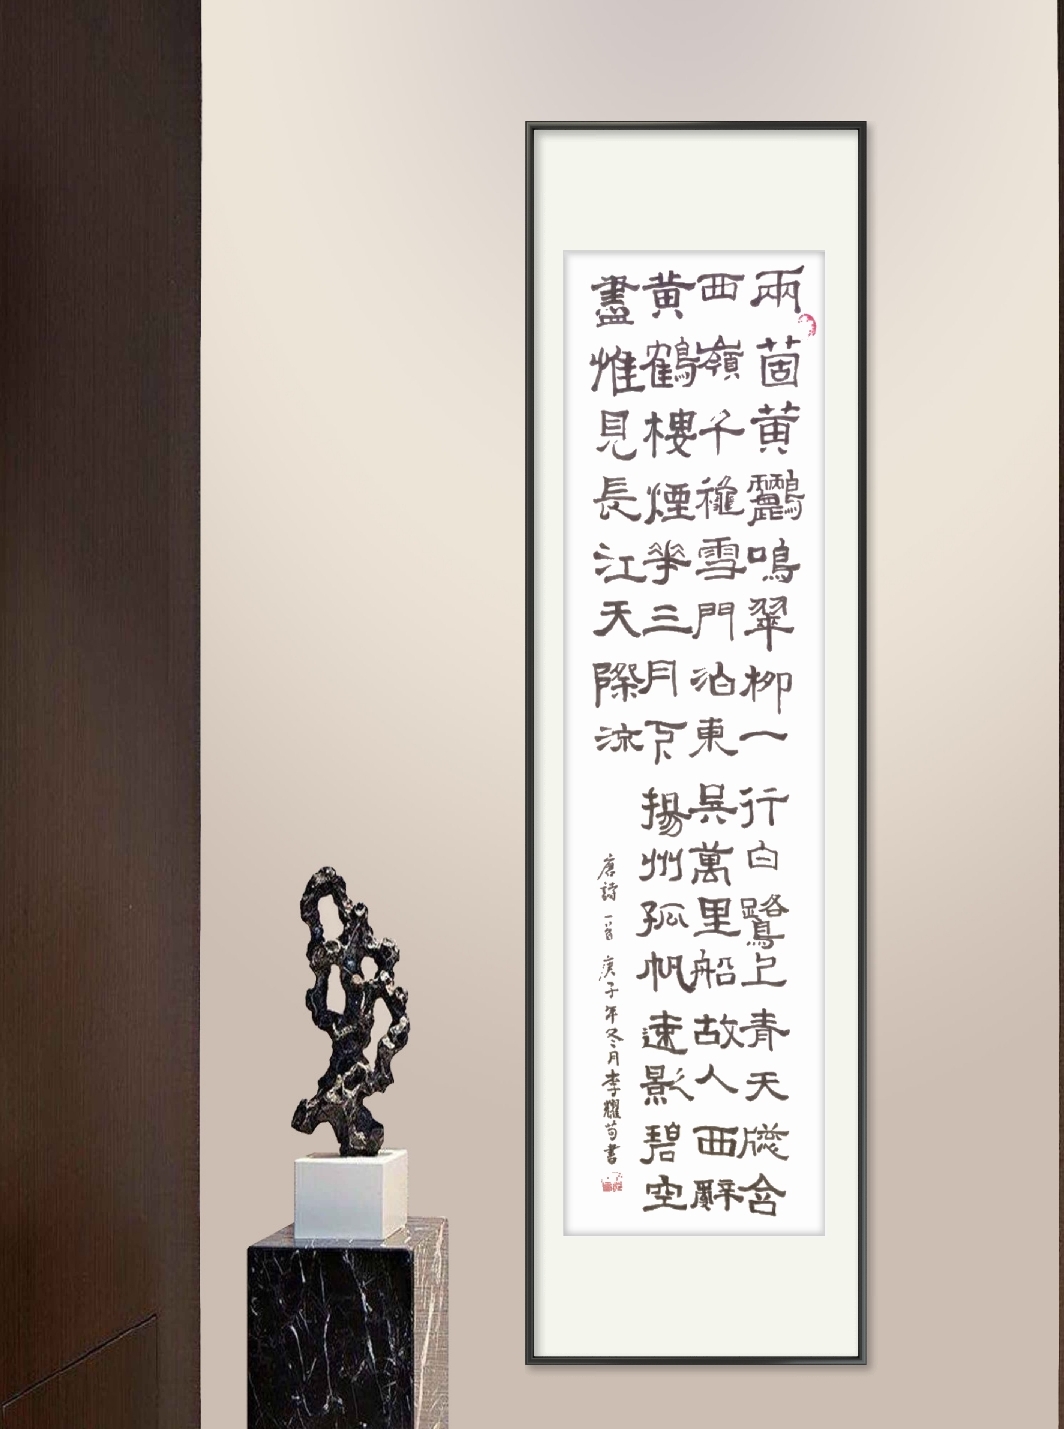 兩箇黄鸝鳴翠柳一行白鷺上青天牕含
西嶺千秋雪門泊東吳萬里船故人西辭
黄鶴樓煙花三月下揚州孤帆遠影碧空
盡惟見長江天際流
唐詩一首庚子年冬月李耀苟書